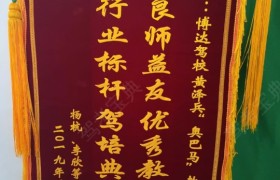 ：博达驾校黄泽兵，奥巴马
良师益友优秀教
行业标杆驾培典
杨杭，李欣等
二〇一九年